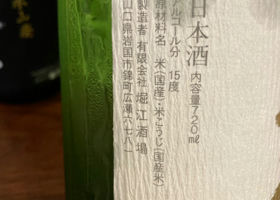 日本酒 内容量720ml
アルコール分 15度
原材料名 米(国産)・米こうじ(国産米)
製造者 有限会社 堀江酒場
山口県岩国市錦町広瀬六七八一